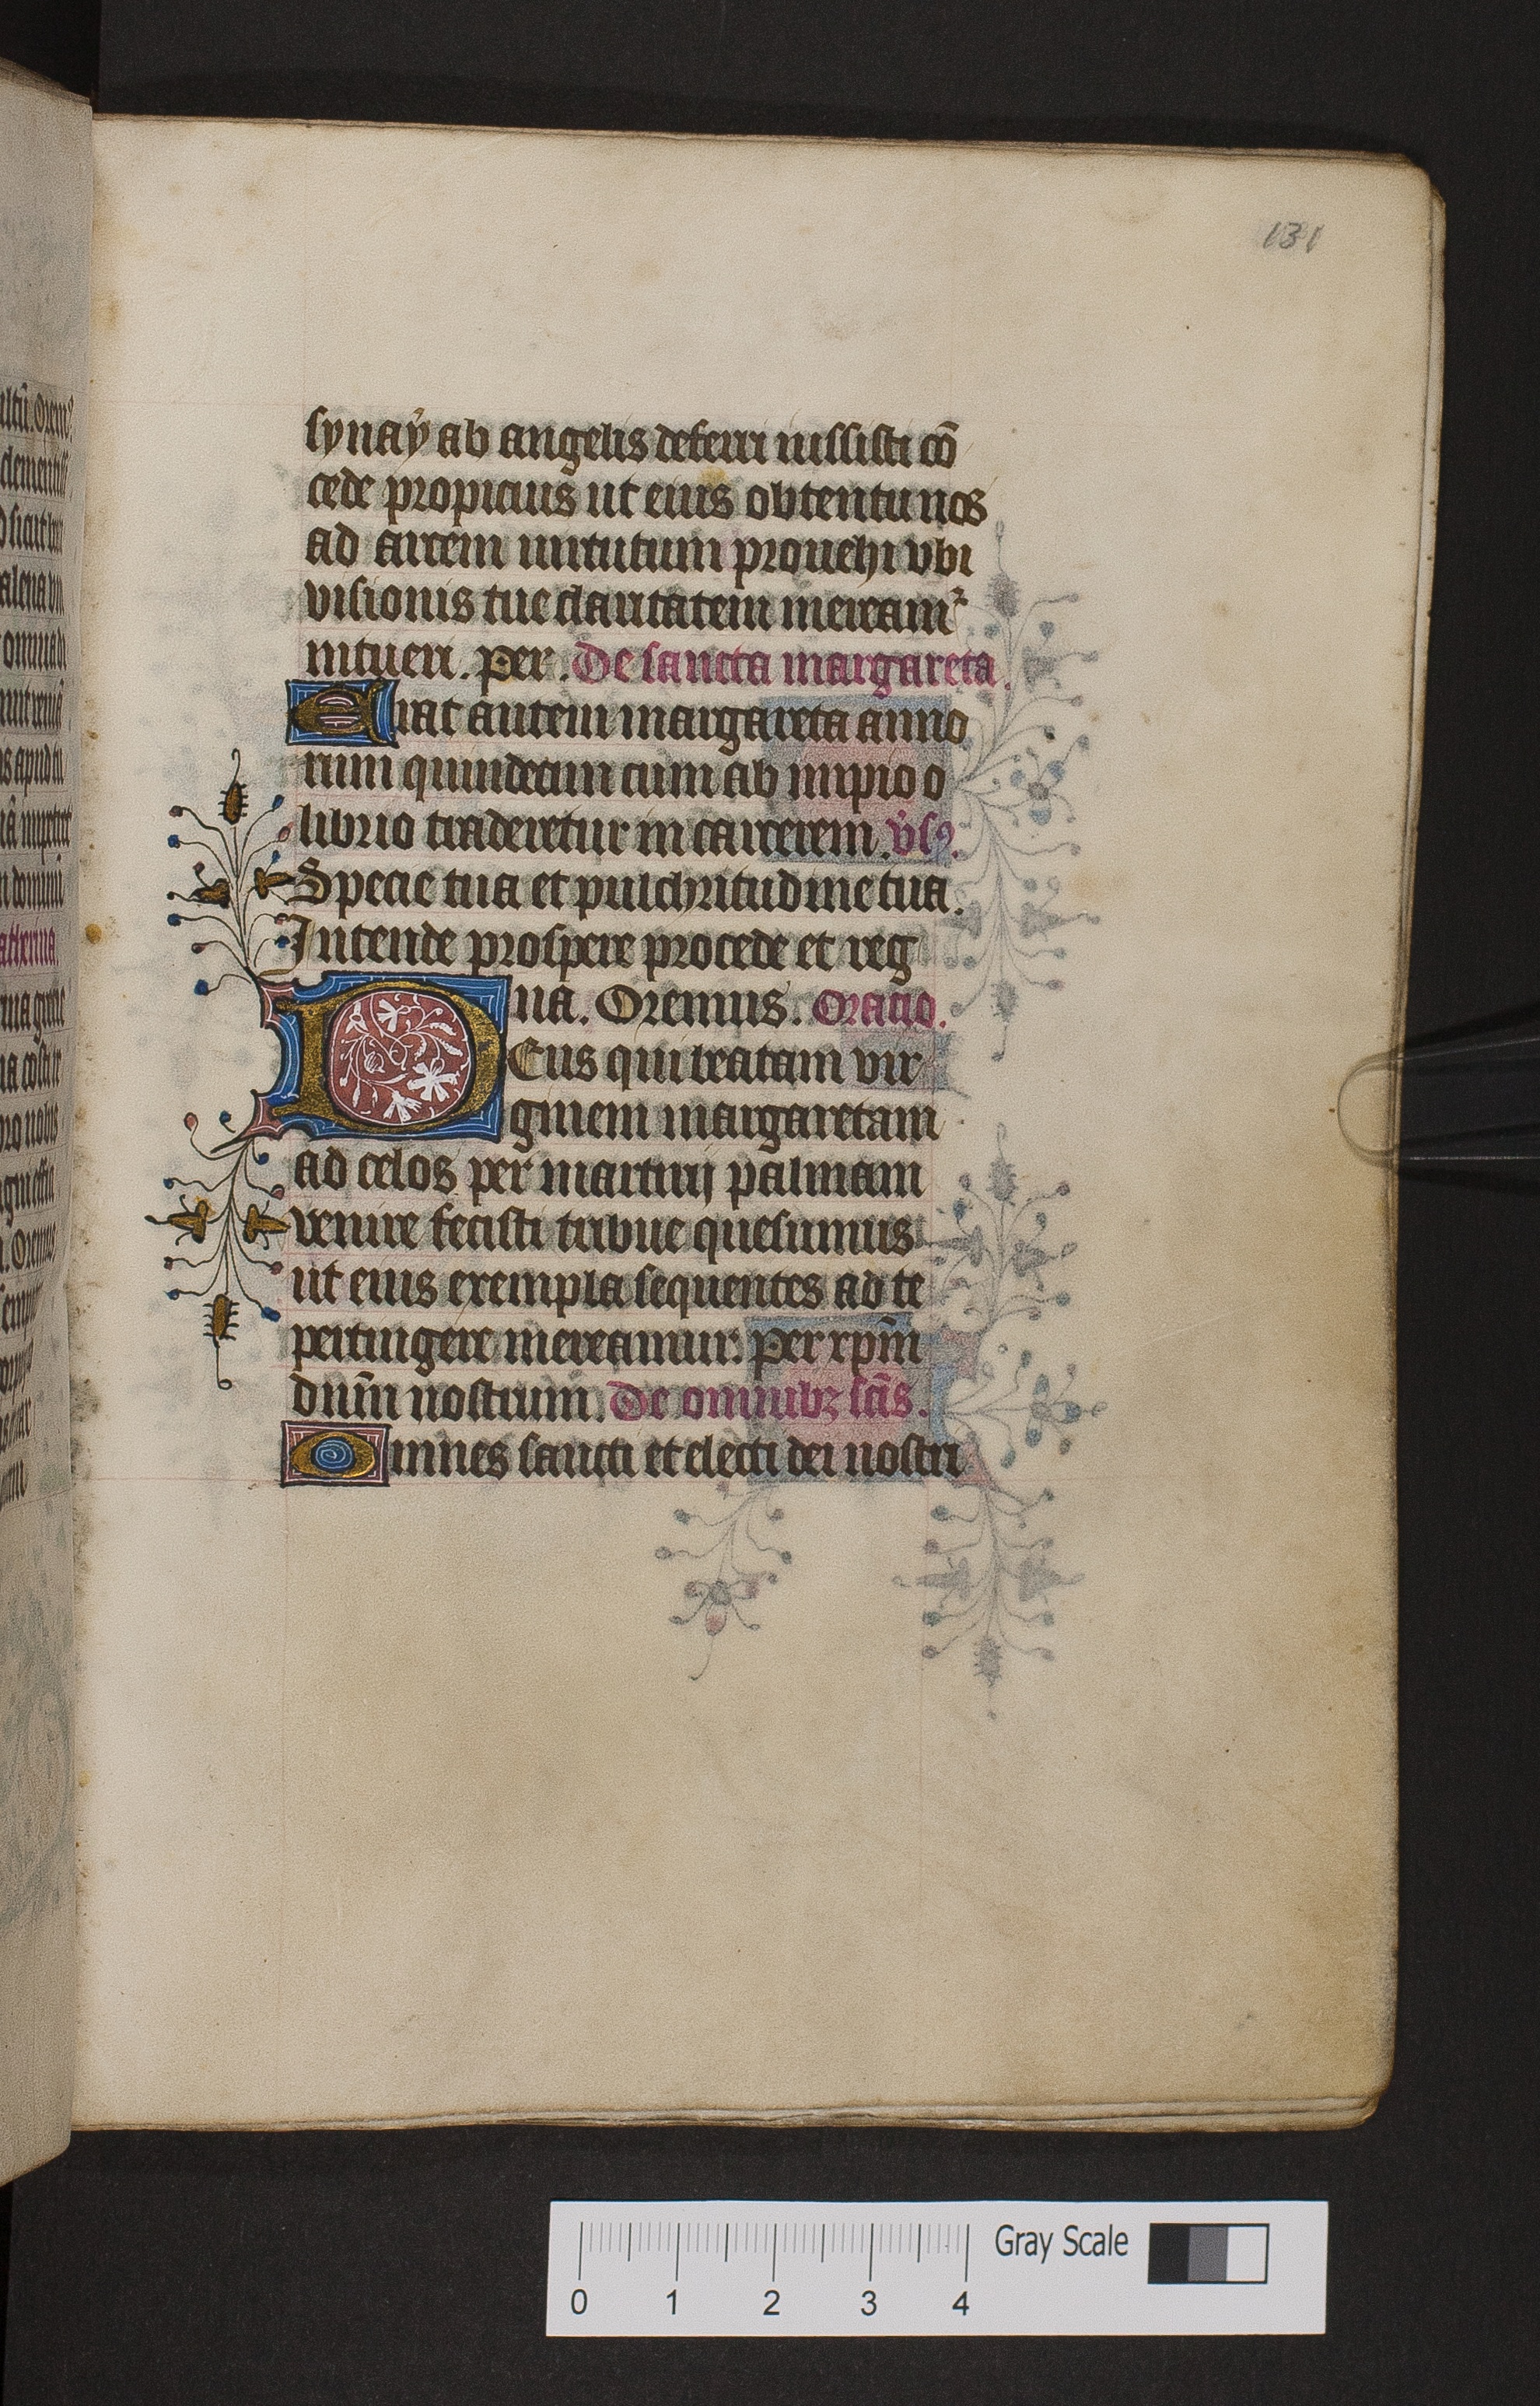 131
synaÿ ab angelis deferri iussisti cō
cede propicius ut eius obtentu nos
ad arcem uirtutum prouehi vbi
visionis tue claritatem meream᷑
intueri. per. De sancta margareta.
Erat autem margareta anno
rum quindecim cum ab impio o
librio traderetur in carcerem. v̄sꝯ.
Specie tua et pulchritudine tua.
Intende prospere procede et reg
na. Oremus. Oratio.
DEus qui beatam vir
ginem margaretam
ad celos per martirij palmam
venire fecisti tribue quesumus
ut eius exempla sequentes ad te
pertingere mereamur. per xpm̄
dnm̄ nostrum. De omnibꝫ sc̄is.
Omnes sancti et electi dei nostri
Gray Scale
0 1 2 3 4